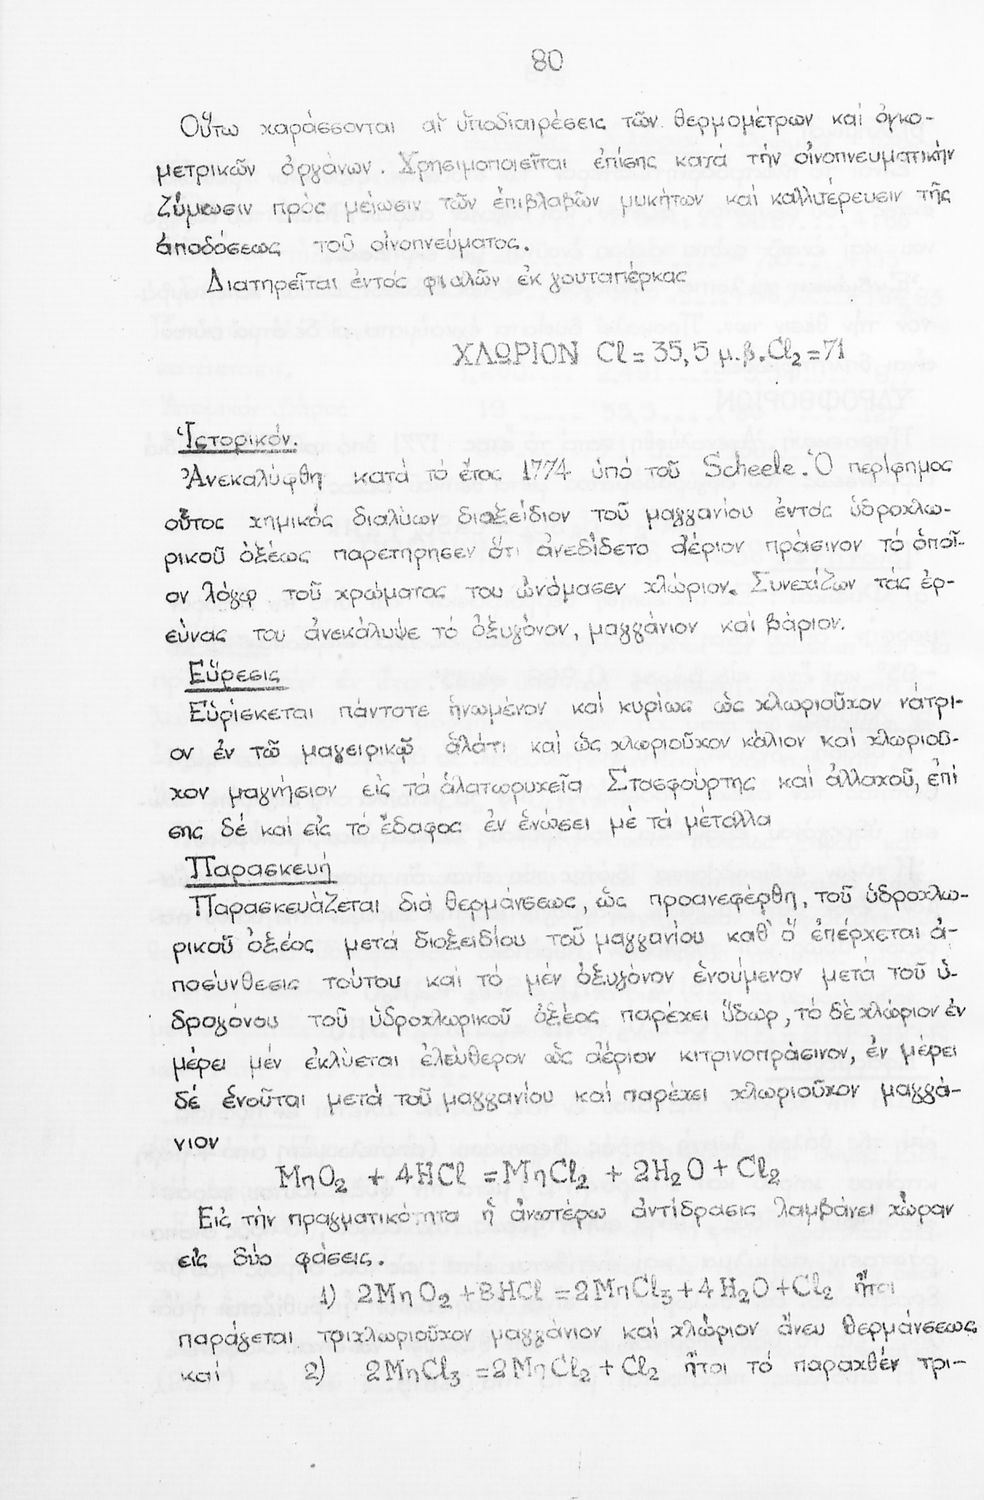 80
Οὕτω χαράσσονται αἱ ὑποδιαιρέσεις τῶν θερμομέτρων καί ὀγκο-
μετρικῶν ὀργάνων. Χρησιμοποιεῖται ἐπίσης κατά τήν οἰνοπνευματικήν
ζύμωσιν πρός μείωσιν τῶν ἐπιβλαβῶν μυκήτων καί καλλιτέρευσιν τῆς
ἀποδόσεως τοῦ οἰνοπνεύματος.
Διατηρεῖται ἐντός φιαλῶν ἐκ γουταπέρκας
ΧΛΩΡΙΟΝ Cl = 35,5 μ.β. Cl₂ = 71
Ἱστορικόν.
Ἀνεκαλύφθη κατά τό ἔτος 1774 ὑπό τοῦ Scheele. Ὁ περίφημος
οὗτος χημικός διαλύων διοξείδιον τοῦ μαγγανίου ἐντός ὑδροχλω-
ρικοῦ ὀξέως παρετήρησεν ὅτι ἀνεδίδετο ἀέριον πράσινον τό ὁποῖ-
ον λόγῳ τοῦ χρώματος του ὠνόμασεν χλώριον. Συνεχίζων τάς ἐρ-
εύνας του ἀνεκάλυψε τό ὀξυγόνον, μαγγάνιον καί βάριον.
Εὕρεσις
Εὑρίσκεται πάντοτε ἡνωμένον καί κυρίως ὡς χλωριοῦχον νάτρι-
ον ἐν τῷ μαγειρικῷ ἅλατι καί ὡς χλωριοῦχον κάλιον καί χλωριοῦ-
χον μαγνήσιον εἰς τά ἁλατωρυχεῖα Στασφούρτης καί ἀλλαχοῦ, ἐπί
σης δέ καί εἰς τό ἔδαφος ἐν ἑνώσει με τά μέταλλα
Παρασκευή
Παρασκευάζεται διά θερμάνσεως, ὡς προανεφέρθη, τοῦ ὑδροχλω-
ρικοῦ ὀξέος μετά διοξειδίου τοῦ μαγγανίου καθ' ὅ ἐπέρχεται ἀ-
ποσύνθεσις τούτου καί τό μέν ὀξυγόνον ἑνούμενον μετά τοῦ ὑ-
δρογόνου τοῦ ὑδροχλωρικοῦ ὀξέος παρέχει ὕδωρ, τό δέ χλώριον ἐν
μέρει μέν ἐκλύεται ἐλεύθερον ὡς ἀέριον κιτρινοπράσινον, ἐν μέρει
δέ ἑνοῦται μετά τοῦ μαγγανίου καί παρέχει χλωριοῦχον μαγγά-
νιον
MnO₂ + 4HCl = MnCl₂ + 2H₂O + Cl₂
Εἰς τήν πραγματικότητα ἡ ἀνωτέρω ἀντίδρασις λαμβάνει χώραν
εἰς δύο φάσεις.
1) 2MnO₂ + 8HCl = 2MnCl₃ + 4H₂O + Cl₂ ἤτοι
παράγεται τριχλωριοῦχον μαγγάνιον καί χλώριον ἄνευ θερμάνσεως
καί 2) 2MnCl₃ = 2MnCl₂ + Cl₂ ἤτοι τό παραχθέν τρι-